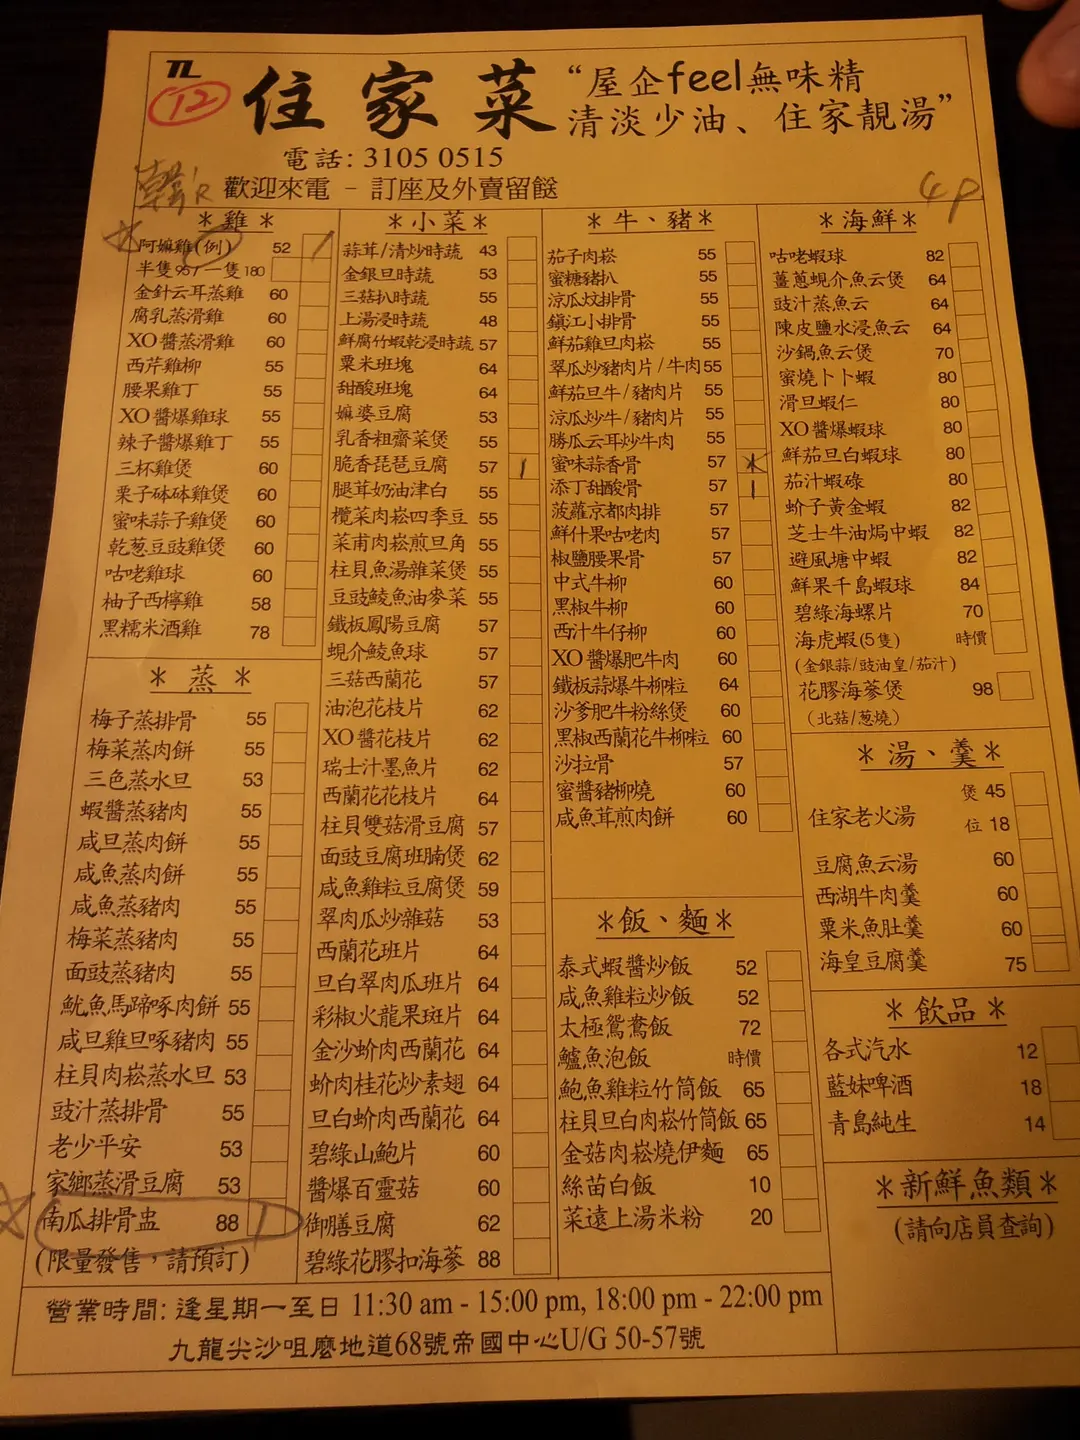 TL
12
住家菜
“屋企feel無味精
清淡少油、住家靚湯”
電話: 3105 0515
歡迎來電 - 訂座及外賣留餸
4P
＊雞＊
阿嫲雞(例) 52
半隻95 / 一隻180
金針云耳蒸雞 60
腐乳蒸滑雞 60
XO醬蒸滑雞 60
西芹雞柳 55
腰果雞丁 55
XO醬爆雞球 55
辣子醬爆雞丁 55
三杯雞煲 60
栗子砵砵雞煲 60
蜜味蒜子雞煲 60
乾葱豆豉雞煲 60
咕咾雞球 60
柚子西檸雞 58
黑糯米酒雞 78
＊蒸＊
梅子蒸排骨 55
梅菜蒸肉餅 55
三色蒸水旦 53
蝦醬蒸豬肉 55
咸旦蒸肉餅 55
咸魚蒸肉餅 55
咸魚蒸豬肉 55
梅菜蒸豬肉 55
面豉蒸豬肉 55
魷魚馬蹄啄肉餅 55
咸旦雞旦啄豬肉 55
柱貝肉崧蒸水旦 53
豉汁蒸排骨 55
老少平安 53
家鄉蒸滑豆腐 53
南瓜排骨盅 88
(限量發售，請預訂)
＊小菜＊
蒜茸/清炒時蔬 43
金銀旦時蔬 53
三菇扒時蔬 55
上湯浸時蔬 48
鮮腐竹蝦乾浸時蔬 57
粟米班塊 64
甜酸班塊 64
嫲婆豆腐 53
乳香粗齋菜煲 55
脆香琵琶豆腐 57
腿茸奶油津白 55
欖菜肉崧四季豆 55
菜甫肉崧煎旦角 55
柱貝魚湯雜菜煲 55
豆豉鯪魚油麥菜 55
鐵板鳳陽豆腐 57
蜆介鯪魚球 57
三菇西蘭花 57
油泡花枝片 62
XO醬花枝片 62
瑞士汁墨魚片 62
西蘭花花枝片 64
柱貝雙菇滑豆腐 57
面豉豆腐班腩煲 62
咸魚雞粒豆腐煲 59
翠肉瓜炒雜菇 53
西蘭花班片 64
旦白翠肉瓜班片 64
彩椒火龍果斑片 64
金沙蚧肉西蘭花 64
蚧肉桂花炒素翅 64
旦白蚧肉西蘭花 64
碧綠山鮑片 60
醬爆百靈菇 60
御膳豆腐 62
碧綠花膠扣海蔘 88
＊牛、豬＊
茄子肉崧 55
蜜糖豬扒 55
涼瓜炆排骨 55
鎮江小排骨 55
鮮茄雞旦肉崧 55
翠瓜炒豬肉片/牛肉 55
鮮茄旦牛/豬肉片 55
涼瓜炒牛/豬肉片 55
勝瓜云耳炒牛肉 55
蜜味蒜香骨 57
添丁甜酸骨 57
菠蘿京都肉排 57
鮮什果咕咾肉 57
椒鹽腰果骨 57
中式牛柳 60
黑椒牛柳 60
西汁牛仔柳 60
XO醬爆肥牛肉 60
鐵板蒜爆牛柳粒 64
沙爹肥牛粉絲煲 60
黑椒西蘭花牛柳粒 60
沙拉骨 57
蜜醬豬柳燒 60
咸魚茸煎肉餅 60
＊飯、麵＊
泰式蝦醬炒飯 52
咸魚雞粒炒飯 52
太極鴛鴦飯 72
鱸魚泡飯 時價
鮑魚雞粒竹筒飯 65
柱貝旦白肉崧竹筒飯 65
金菇肉崧燒伊麵 65
絲苗白飯 10
菜遠上湯米粉 20
＊海鮮＊
咕咾蝦球 82
薑蔥蜆介魚云煲 64
豉汁蒸魚云 64
陳皮鹽水浸魚云 64
沙鍋魚云煲 70
蜜燒卜卜蝦 80
滑旦蝦仁 80
XO醬爆蝦球 80
鮮茄旦白蝦球 80
茄汁蝦碌 80
蚧子黃金蝦 82
芝士牛油焗中蝦 82
避風塘中蝦 82
鮮果千島蝦球 84
碧綠海螺片 70
海虎蝦(5隻) 時價
(金銀蒜/豉油皇/茄汁)
花膠海蔘煲 98
(北菇/葱燒)
＊湯、羹＊
住家老火湯 煲 45
位 18
豆腐魚云湯 60
西湖牛肉羹 60
粟米魚肚羹 60
海皇豆腐羹 75
＊飲品＊
各式汽水 12
藍妹啤酒 18
青島純生 14
＊新鮮魚類＊
(請向店員查詢)
營業時間: 逢星期一至日 11:30 am - 15:00 pm, 18:00 pm - 22:00 pm
九龍尖沙咀麼地道68號帝國中心U/G 50-57號